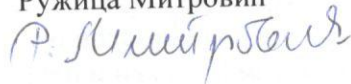 Ружица Митровић
Р. Митровић